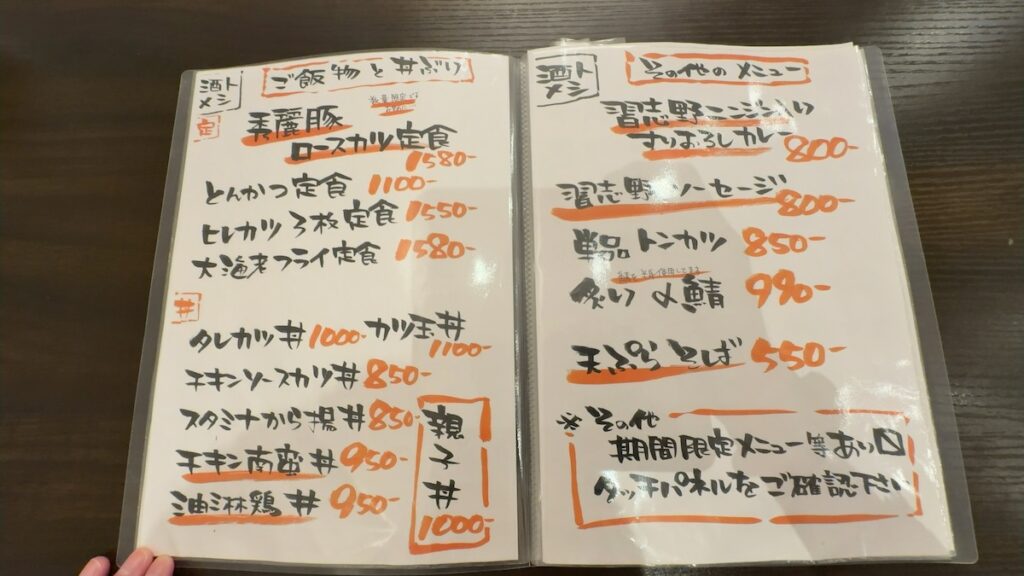 酒トメシ
ご飯物と丼ぶり
定
美麗豚
ロースカツ定食
1580-
とんかつ定食 1100-
ヒレカツ3枚定食 1550-
大海老フライ定食 1580-
丼
タレカツ丼 1000- カツ玉丼
1100-
チキンソースカツ丼 850-
スタミナから揚丼 850-
チキン南蛮丼 950-
油淋鶏丼 950-
親子丼
1000-
酒トメシ
その他のメニュー
習志野ニンジン入り
すりおろしカレー 800-
習志野ソーセージ 800-
単品トンカツ 850-
炙り〆鯖 990-
天ぷらそば 550-
※その他
期間限定メニュー等あり〼
タッチパネルをご確認下さい